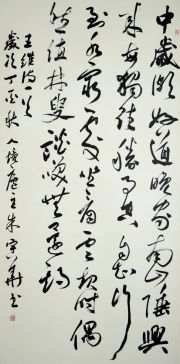 中歲頗好道晚家南山陲興
來每獨往勝事空自知行
到水窮處坐看雲起時偶
然值林叟談笑無還期
王維詩一首
丁酉秋人境廬主朱